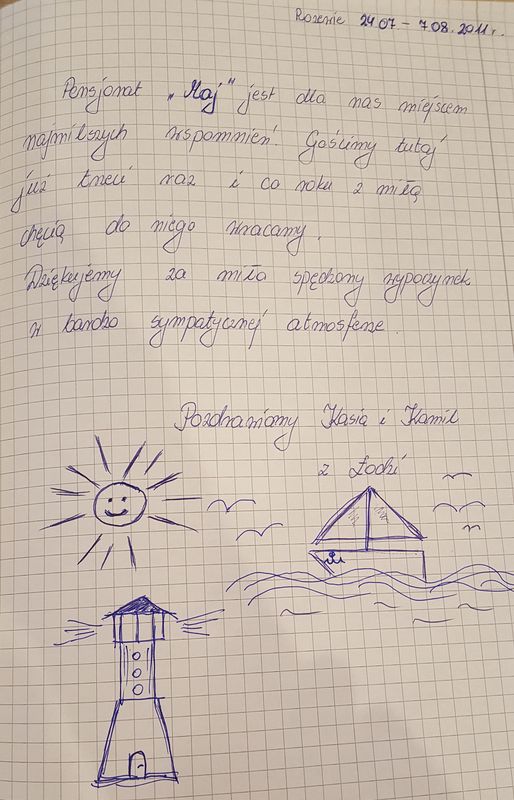 Rozewie 24.07 – 7.08.2011r.
Pensjonat „Maj" jest dla nas miejscem
najmilszych wspomnień. Gościmy tutaj
już trzeci raz i co roku z miłą
chęcią do niego wracamy.
Dziękujemy za miło spędzony wypoczynek
w bardzo sympatycznej atmosferze.
Pozdrawiamy Kasia i Kamil
z Łodzi